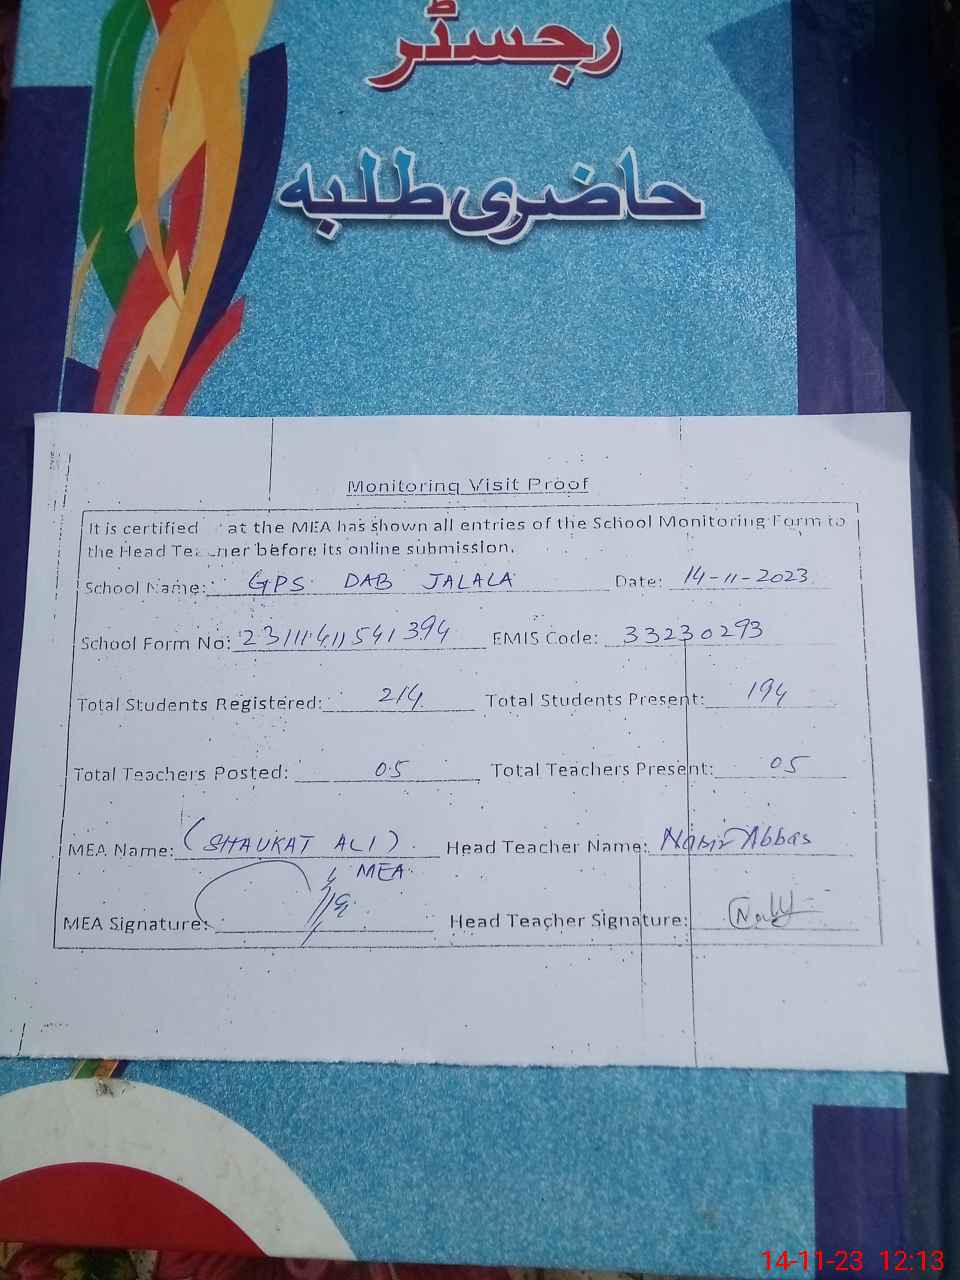 رجسٹر
حاضری طلبہ
Monitoring Visit Proof
It is certified at the MEA has shown all entries of the School Monitoring Form to
the Head Teacher before its online submission.
School Name: GPS DAB JALALA Date: 14-11-2023
School Form No: 23111411541394 EMIS Code: 33230293
Total Students Registered: 214 Total Students Present: 194
Total Teachers Posted: 05 Total Teachers Present: 05
MEA Name: (SHAUKAT ALI) Head Teacher Name: Nasir Abbas
MEA
MEA Signature: Head Teacher Signature:
14-11-23 12:13